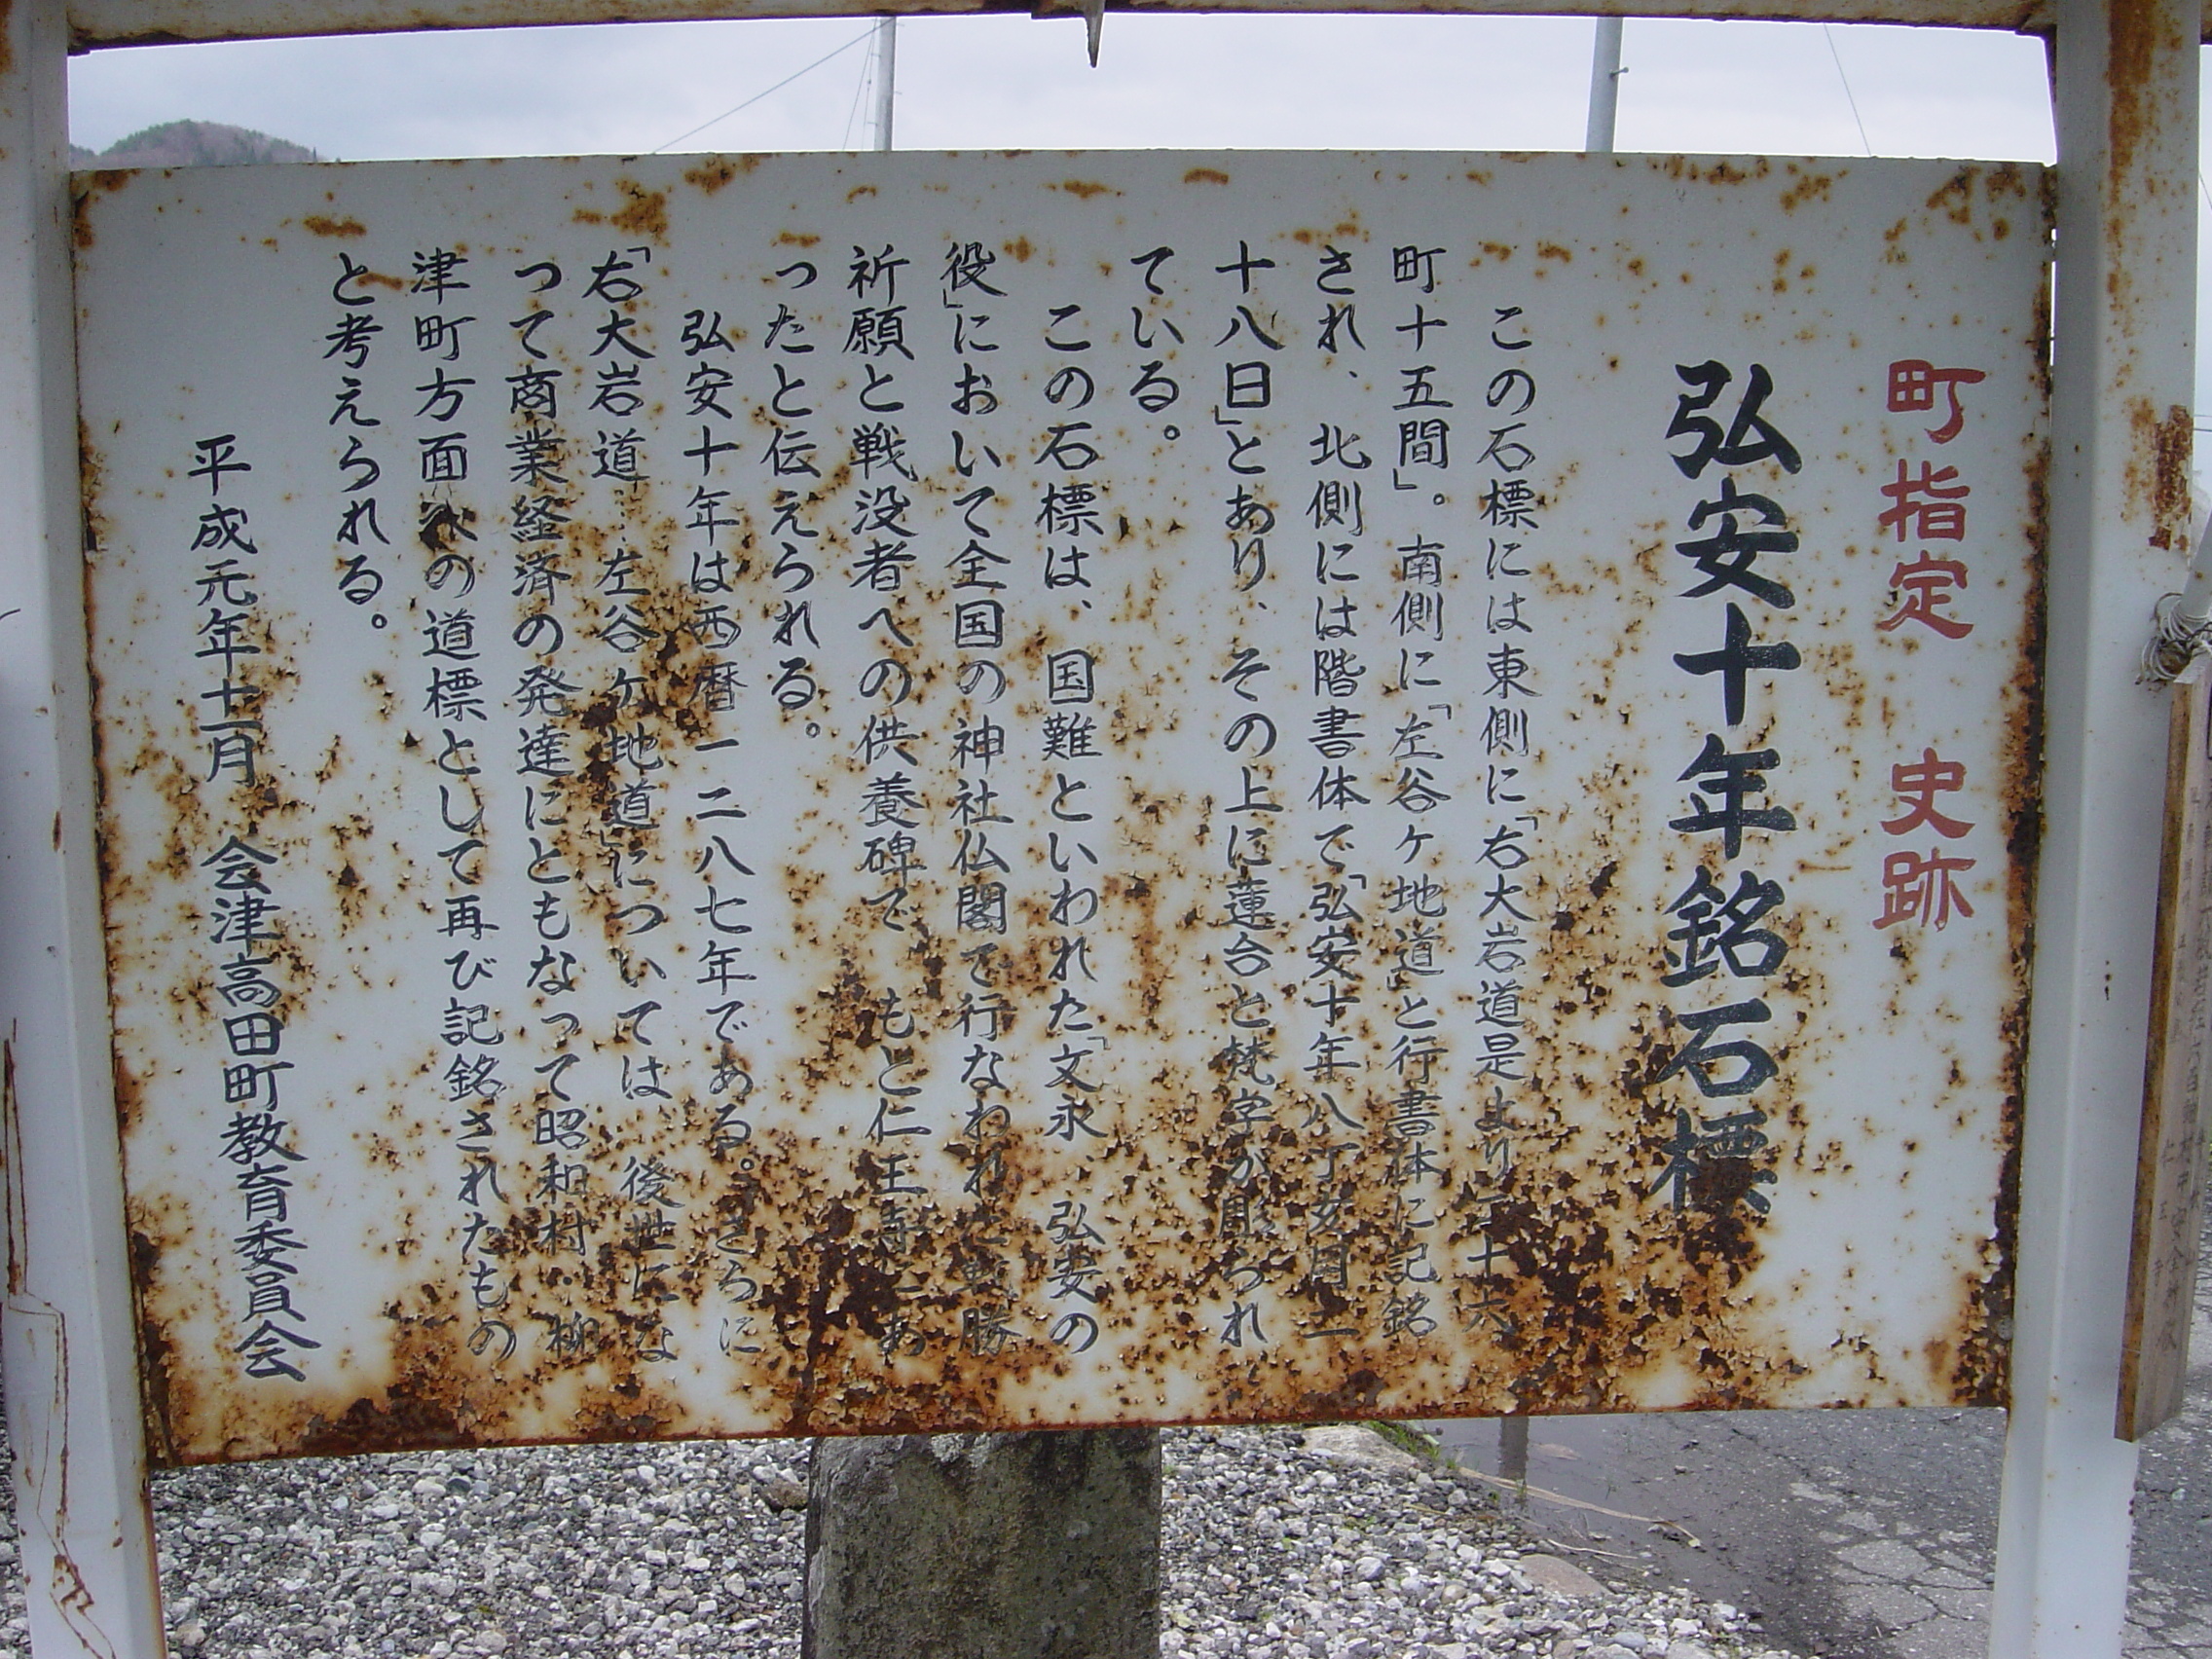 町指定 史跡
弘安十年銘石標
この石標には東側に「右大岩道是より二十六
町十五間」。南側に「左谷ヶ地道」と行書体に記銘
され、北側には階書体で「弘安十年八丁亥月二
十八日」とあり、その上に蓮台と梵字が彫られ
ている。
この石標は、国難といわれた「文永、弘安の
役」において全国の神社仏閣で行なわれた戦勝
祈願と戦没者への供養碑で もと仁王寺にあ
ったと伝えられる。
弘安十年は西暦一二八七年である。さらに
「右大岩道…左谷ヶ地道」については 後世にな
って商業経済の発達にともなって昭和村・柳
津町方面への道標として再び記銘されたもの
と考えられる。
平成元年十一月 会津高田町教育委員会